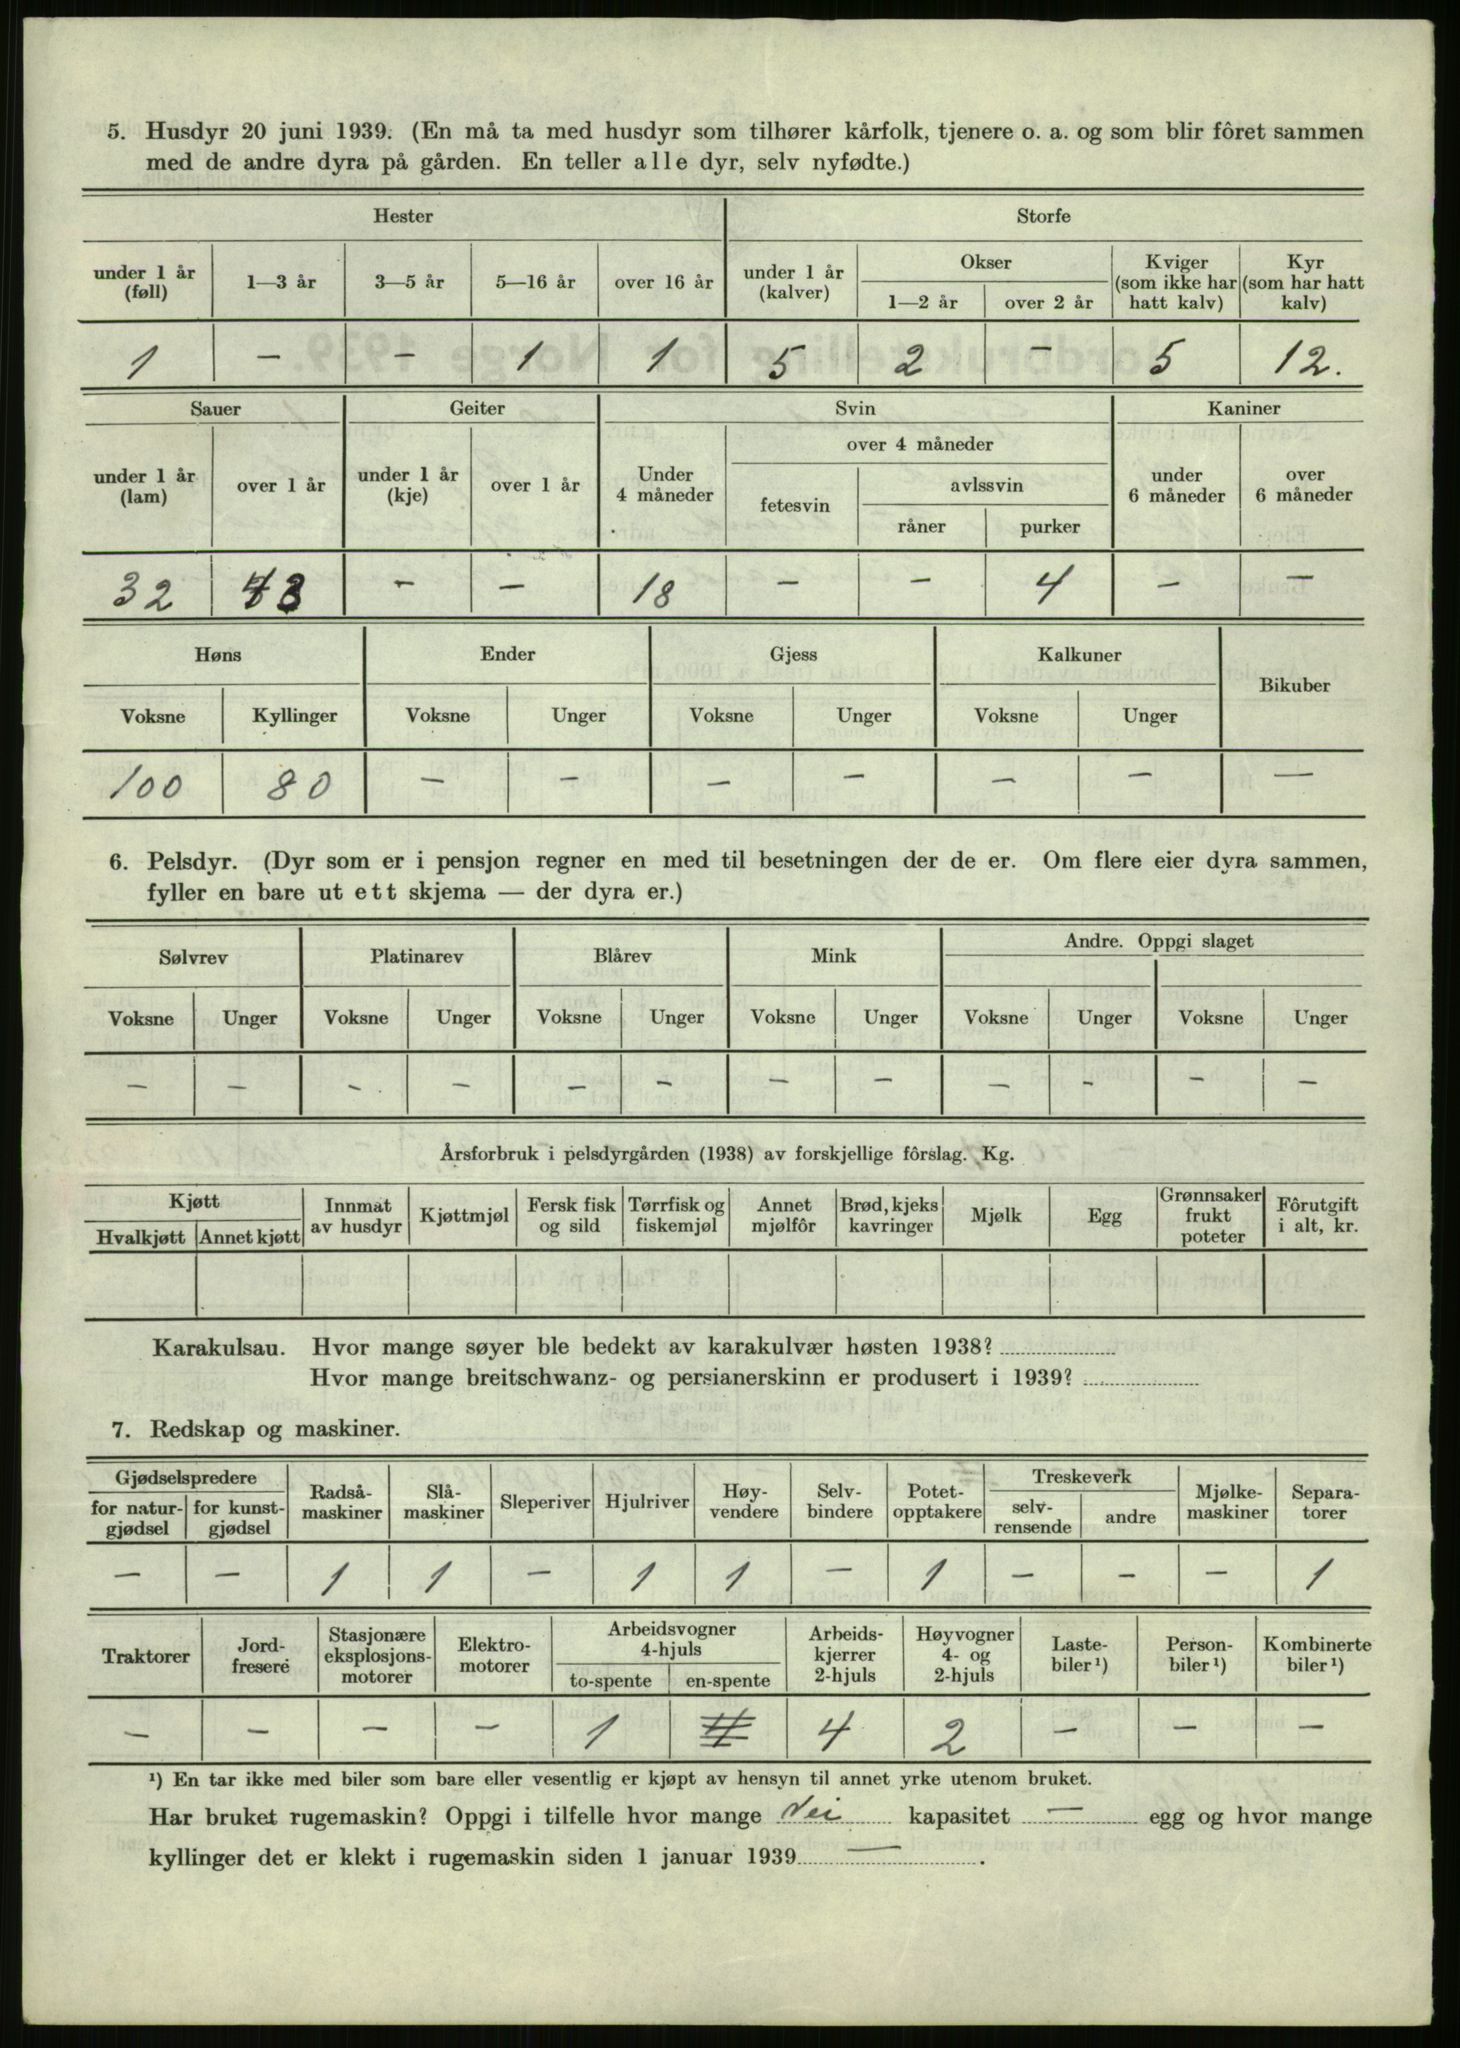 5. Husdyr 20 juni 1939. (En må ta med husdyr som tilhører kårfolk, tjenere o. a. og som blir fôret sammen
med de andre dyra på gården. En teller alle dyr, selv nyfødte.)
Hester Storfe
under 1 år (føll) 1—3 år 3—5 år 5—16 år over 16 år under 1 år (kalver) Okser 1—2 år over 2 år Kviger (som ikke har hatt kalv) Kyr (som har hatt kalv)
1 — — 1 1 5 2 — 5 12.
Sauer Geiter Svin Kaniner
under 1 år (lam) over 1 år under 1 år (kje) over 1 år Under 4 måneder over 4 måneder fetesvin avlssvin råner purker under 6 måneder over 6 måneder
32 — — 18 — — 4 — —
Høns Ender Gjess Kalkuner Bikuber
Voksne Kyllinger Voksne Unger Voksne Unger Voksne Unger
100 80 — — — — — — —
6. Pelsdyr. (Dyr som er i pensjon regner en med til besetningen der de er. Om flere eier dyra sammen,
fyller en bare ut ett skjema — der dyra er.)
Sølvrev Platinarev Blårev Mink Andre. Oppgi slaget
Voksne Unger Voksne Unger Voksne Unger Voksne Unger Voksne Unger Voksne Unger
— — — — — — — — — — — —
Årsforbruk i pelsdyrgården (1938) av forskjellige fôrslag. Kg.
Kjøtt Hvalkjøtt Annet kjøtt Innmat av husdyr Kjøttmjøl Fersk fisk og sild Tørrfisk og fiskemjøl Annet mjølfôr Brød, kjeks kavringer Mjølk Egg Grønnsaker frukt poteter Fôrutgift i alt, kr.
Karakulsau. Hvor mange søyer ble bedekt av karakulvær høsten 1938?
Hvor mange breitschwanz- og persianerskinn er produsert i 1939?
7. Redskap og maskiner.
Gjødselspredere for natur-gjødsel for kunst-gjødsel Radså-maskiner Slå-maskiner Sleperiver Hjulriver Høy-vendere Selv-bindere Potet-opptakere Treskeverk selv-rensende andre Mjølke-maskiner Separa-torer
— — 1 1 — 1 1 — 1 — — — 1
Traktorer Jord-fresere Stasjonære eksplosjons-motorer Elektro-motorer Arbeidsvogner 4-hjuls to-spente en-spente Arbeids-kjerrer 2-hjuls Høyvogner 4- og 2-hjuls Laste-biler¹) Person-biler¹) Kombinerte biler¹)
— — — — 1 4 2 — — —
¹) En tar ikke med biler som bare eller vesentlig er kjøpt av hensyn til annet yrke utenom bruket.
Har bruket rugemaskin? Oppgi i tilfelle hvor mange Nei kapasitet — egg og hvor mange
kyllinger det er klekt i rugemaskin siden 1 januar 1939 — .